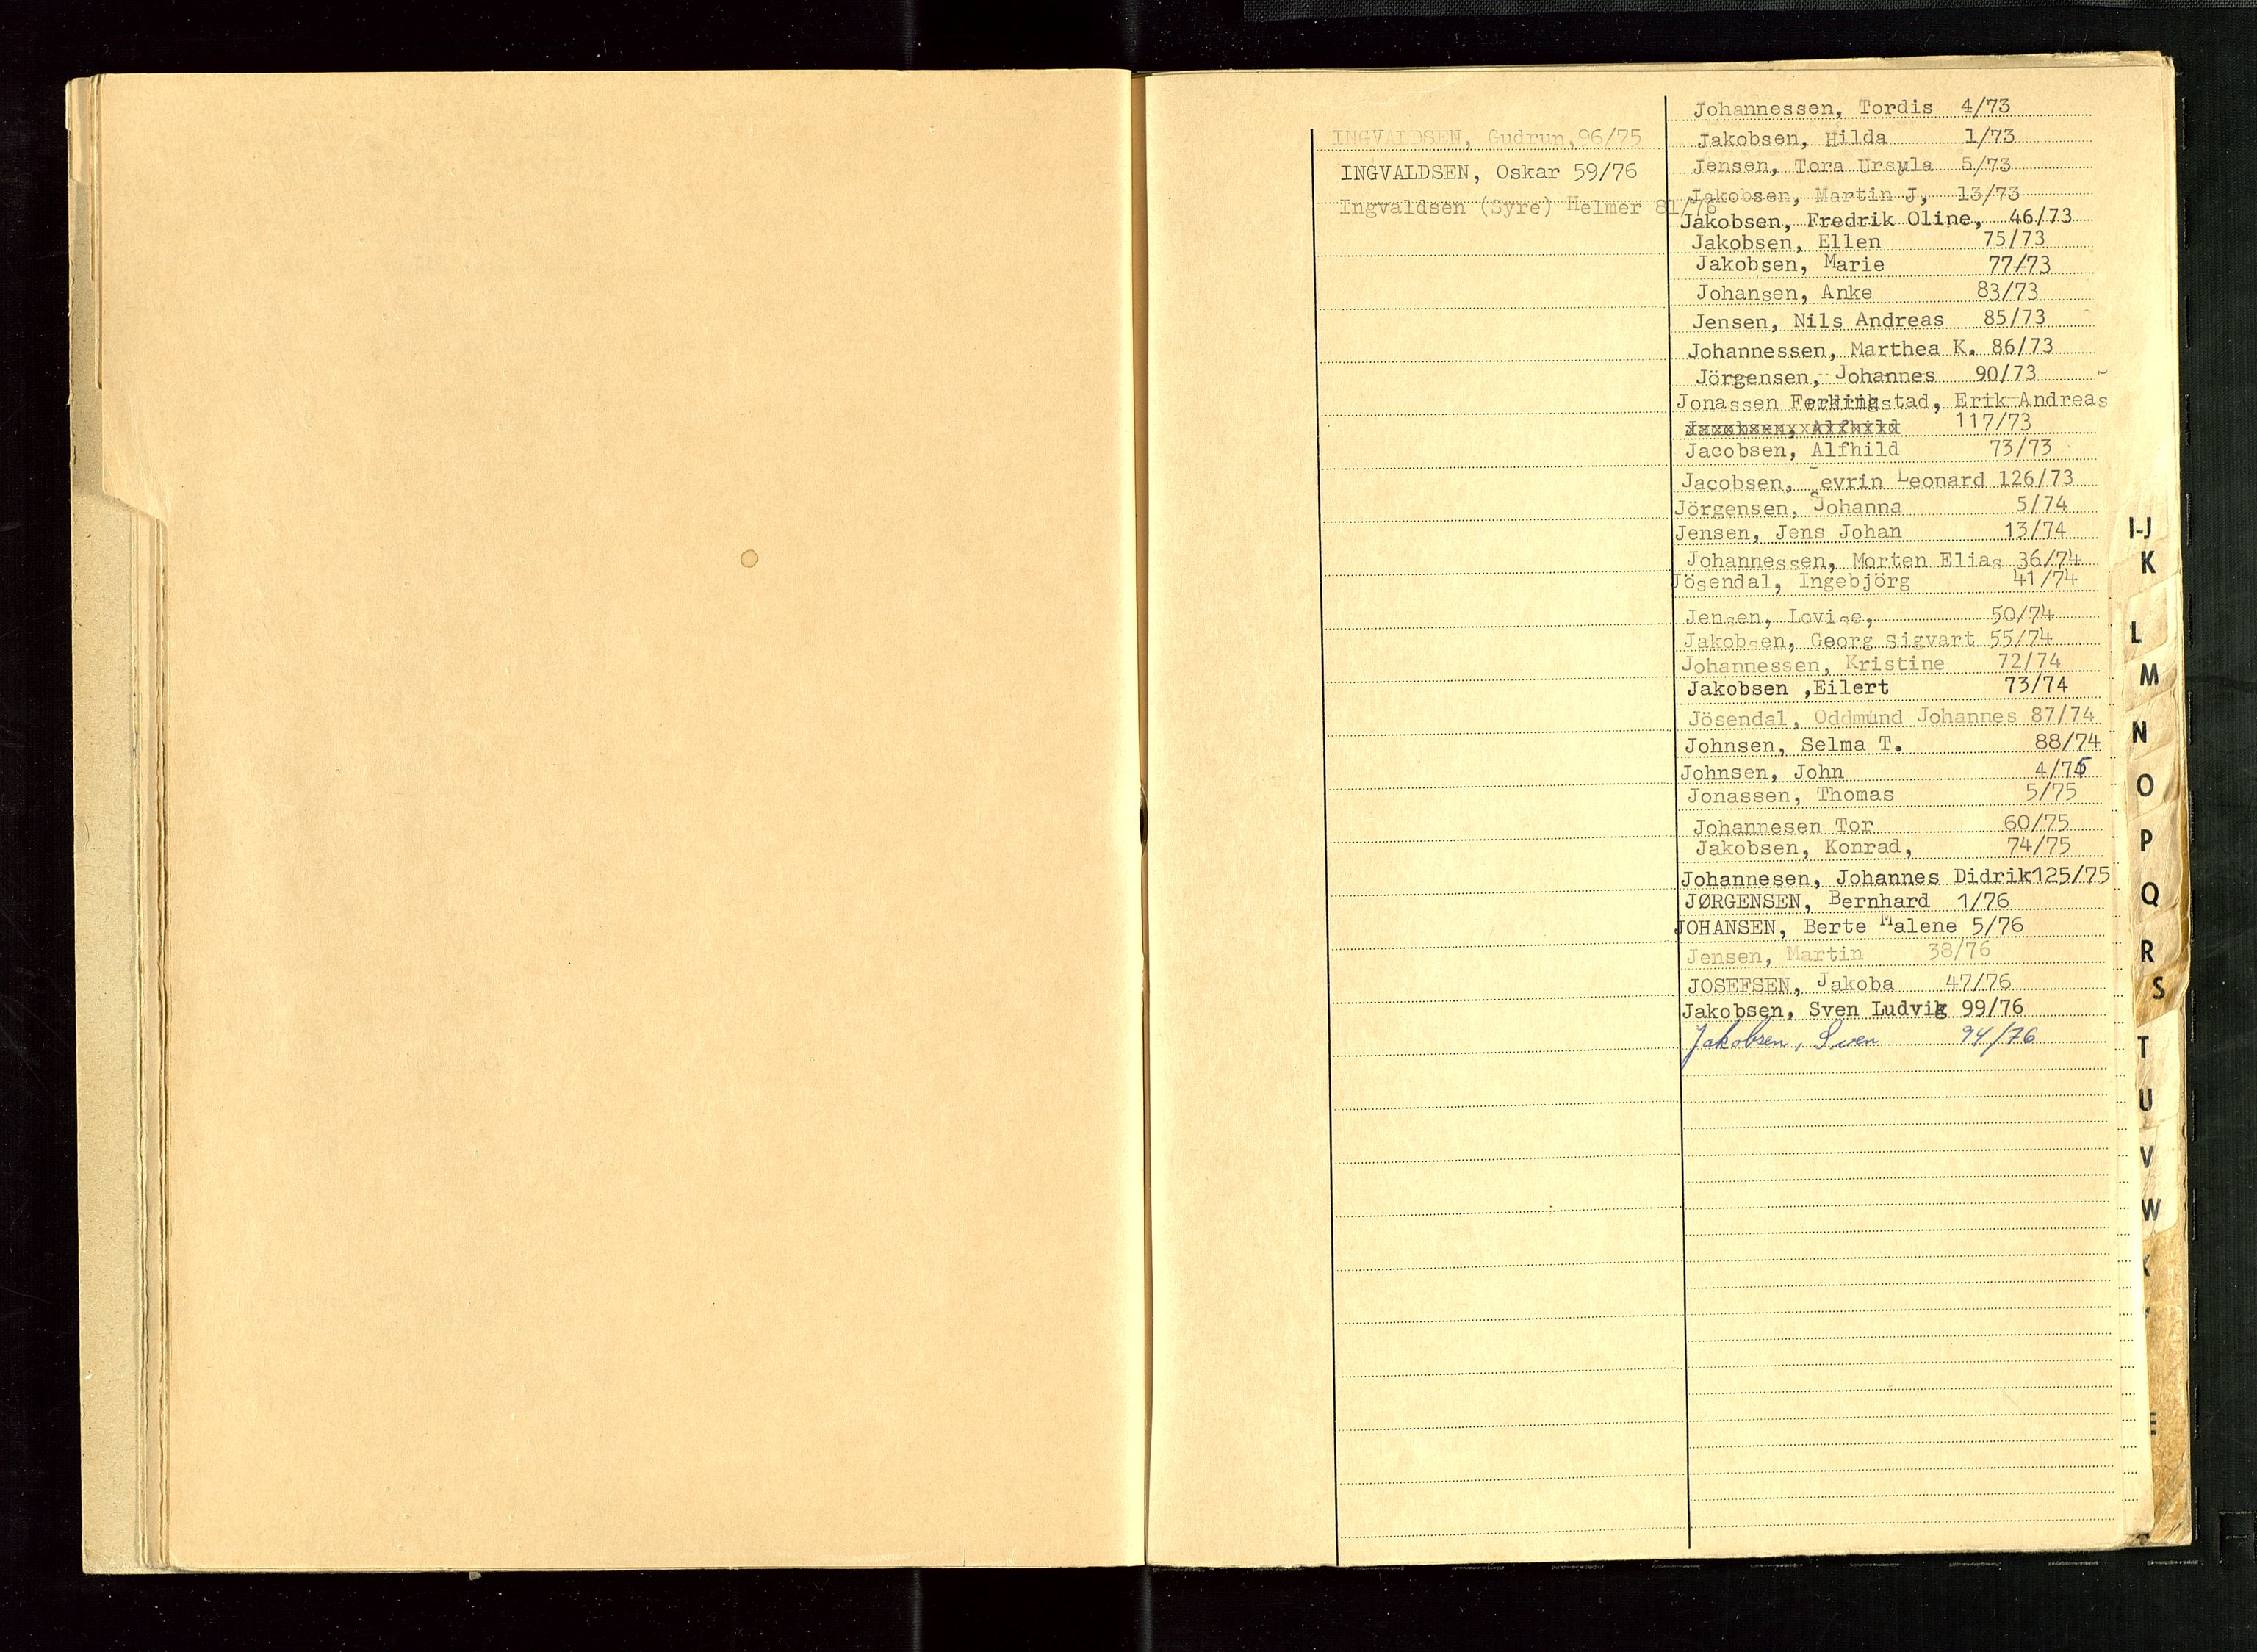 INGVALDSEN, Gudrun,96/75
INGVALDSEN, Oskar 59/76
Ingvaldsen (Syre) Helmer 81/76
Johannessen, Tordis 4/73
Jakobsen, Hilda 1/73
Jensen, Tora Ursula 5/73
Jakobsen, Martin J, 13/73
Jakobsen, Fredrik Oline, 46/73
Jakobsen, Ellen 75/73
Jakobsen, Marie 77/73
Johansen, Anke 83/73
Jensen, Nils Andreas 85/73
Johannessen, Marthea K. 86/73
Jörgensen, Johannes 90/73
Jonassen Ferkingstad, Erik Andreas
117/73
Jacobsen, Alfhild 73/73
Jacobsen, Sevrin Leonard 126/73
Jörgensen, Johanna 5/74
Jensen, Jens Johan 13/74
Johannessen, Morten Elias 36/74
Jösendal, Ingebjörg 41/74
Jensen, Lovise, 50/74
Jakobsen, Georg Sigvart 55/74
Johannessen, Kristine 72/74
Jakobsen ,Eilert 73/74
Jösendal, Oddmund Johannes 87/74
Johnsen, Selma T. 88/74
Johnsen, John 4/75
Jonassen, Thomas 5/75
Johannesen Tor 60/75
Jakobsen, Konrad, 74/75
Johannesen, Johannes Didrik125/75
JØRGENSEN, Bernhard 1/76
JOHANSEN, Berte Malene 5/76
Jensen, Martin 38/76
JOSEFSEN, Jakoba 47/76
Jakobsen, Sven Ludvik 99/76
Jakobsen, Sven 94/76
I-J
K
L
M
N
O
P
Q
R
S
T
U
V
W